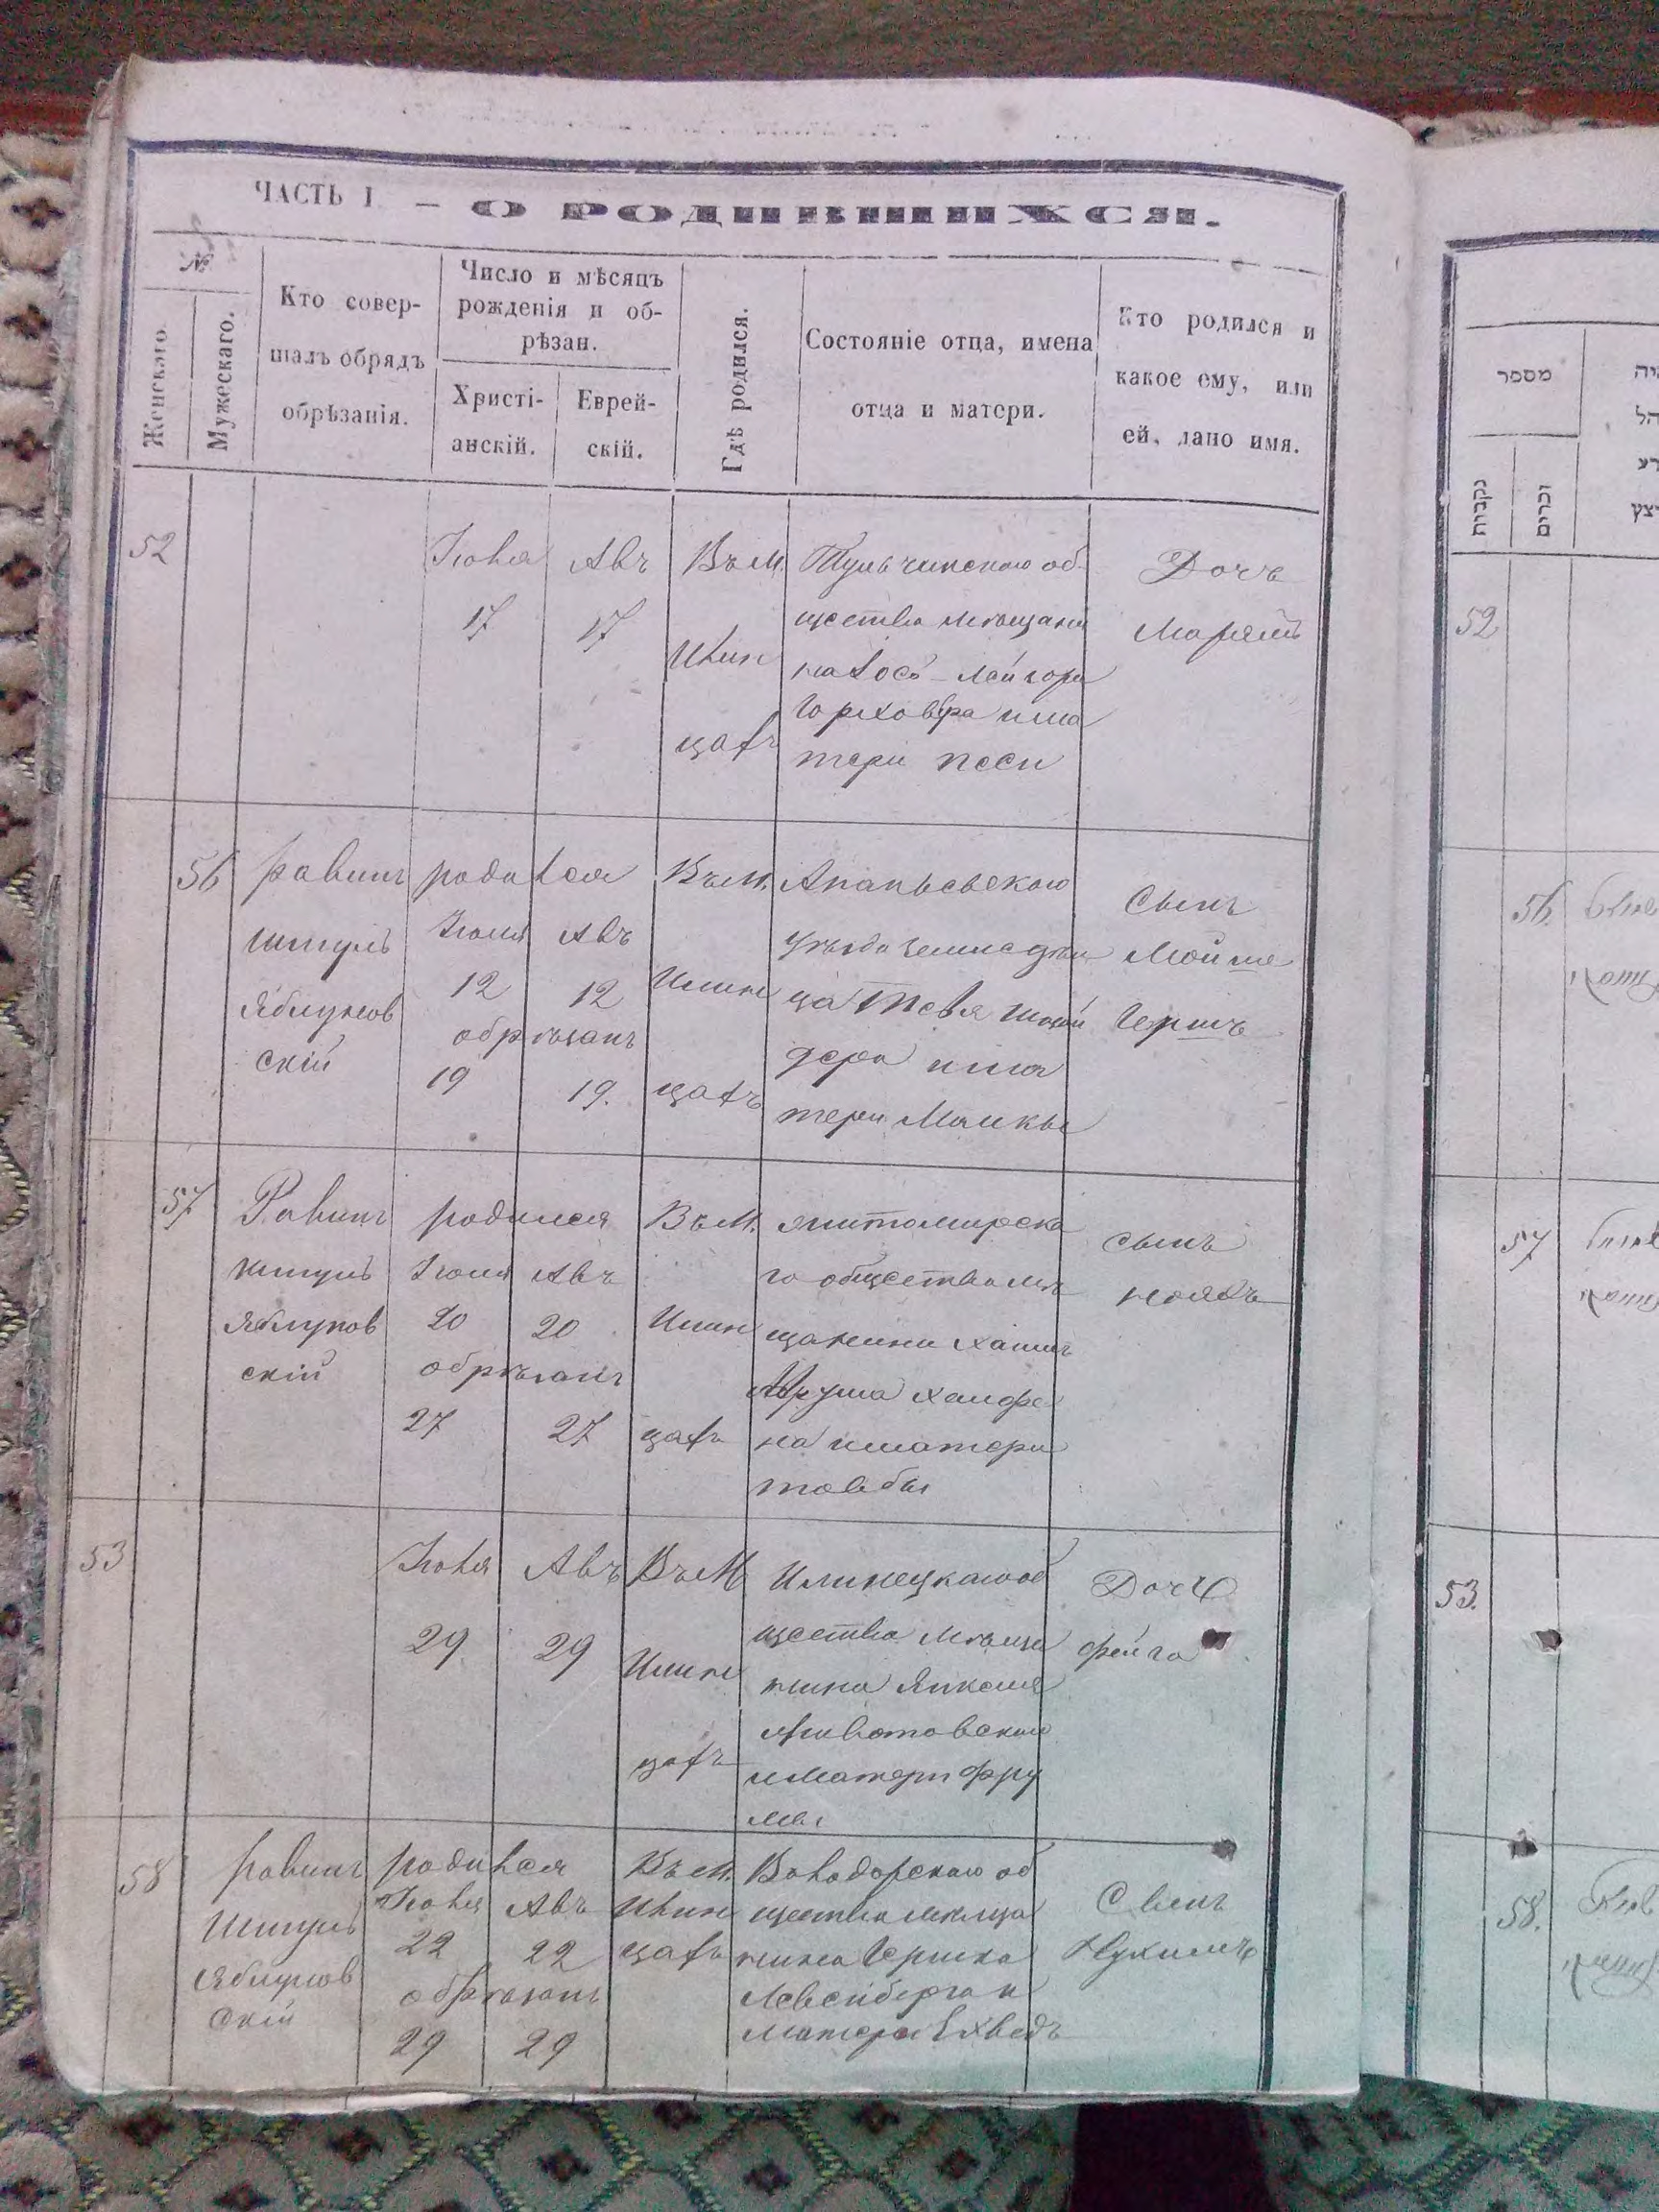 ЧАСТЬ I. — О РОДИВШИХСЯ.
№
Женскаго.
Мужескаго.
Кто совер-
шалъ обрядъ
обрѣзанія.
Число и мѣсяцъ
рожденія и об-
рѣзан.
Христі-
анскій.
Еврей-
скій.
Гдѣ родился.
Состояніе отца, имена
отца и матери.
Кто родился и
какое ему, или
ей, дано имя.
52
Іюля
17
Авъ
17
Въ М.
Илин
цахъ
Тульчинскаго об-
щества мѣщани
на
тери Песи
Дочь
Марьямъ
56
Равинъ
Шмуль
Яблунов
скій
родился
Іюля Авъ
12 12
обрѣзанъ
19 19.
Въ М.
Илин
цахъ
Ананьевскаго
уѣзда
ца Тевя Шнай
дера и ма
тери Малки
Сынъ
Мойше
Гершъ
57
Равинъ
Шмуль
Яблунов
скій
родился
Іюля Авъ
20 20
обрѣзанъ
27 27
Въ М.
Илин
цахъ
Житомирска
го общества мѣ
щанина Хаима
на и матери
товбы
Сынъ
Нояхъ
53
Іюля
29
Авъ
29
Въ М
Илин
цахъ
Илинецкаго об
щества мѣща
нина Янкеля
Животовскаго
и матери Фру
мы
Дочь
Фейга
58
Равинъ
Шмуль
Яблунов
скій
родился
Іюля Авъ
22 22
обрѣзанъ
29 29
Въ М.
Илин
цахъ
Володарскаго об
щества мѣща
нина Гершка
Левенберга и
матери Ехведъ
Сынъ
Нухимъ
מספר
נקבות
זכרים
52
56.
57
53.
58.